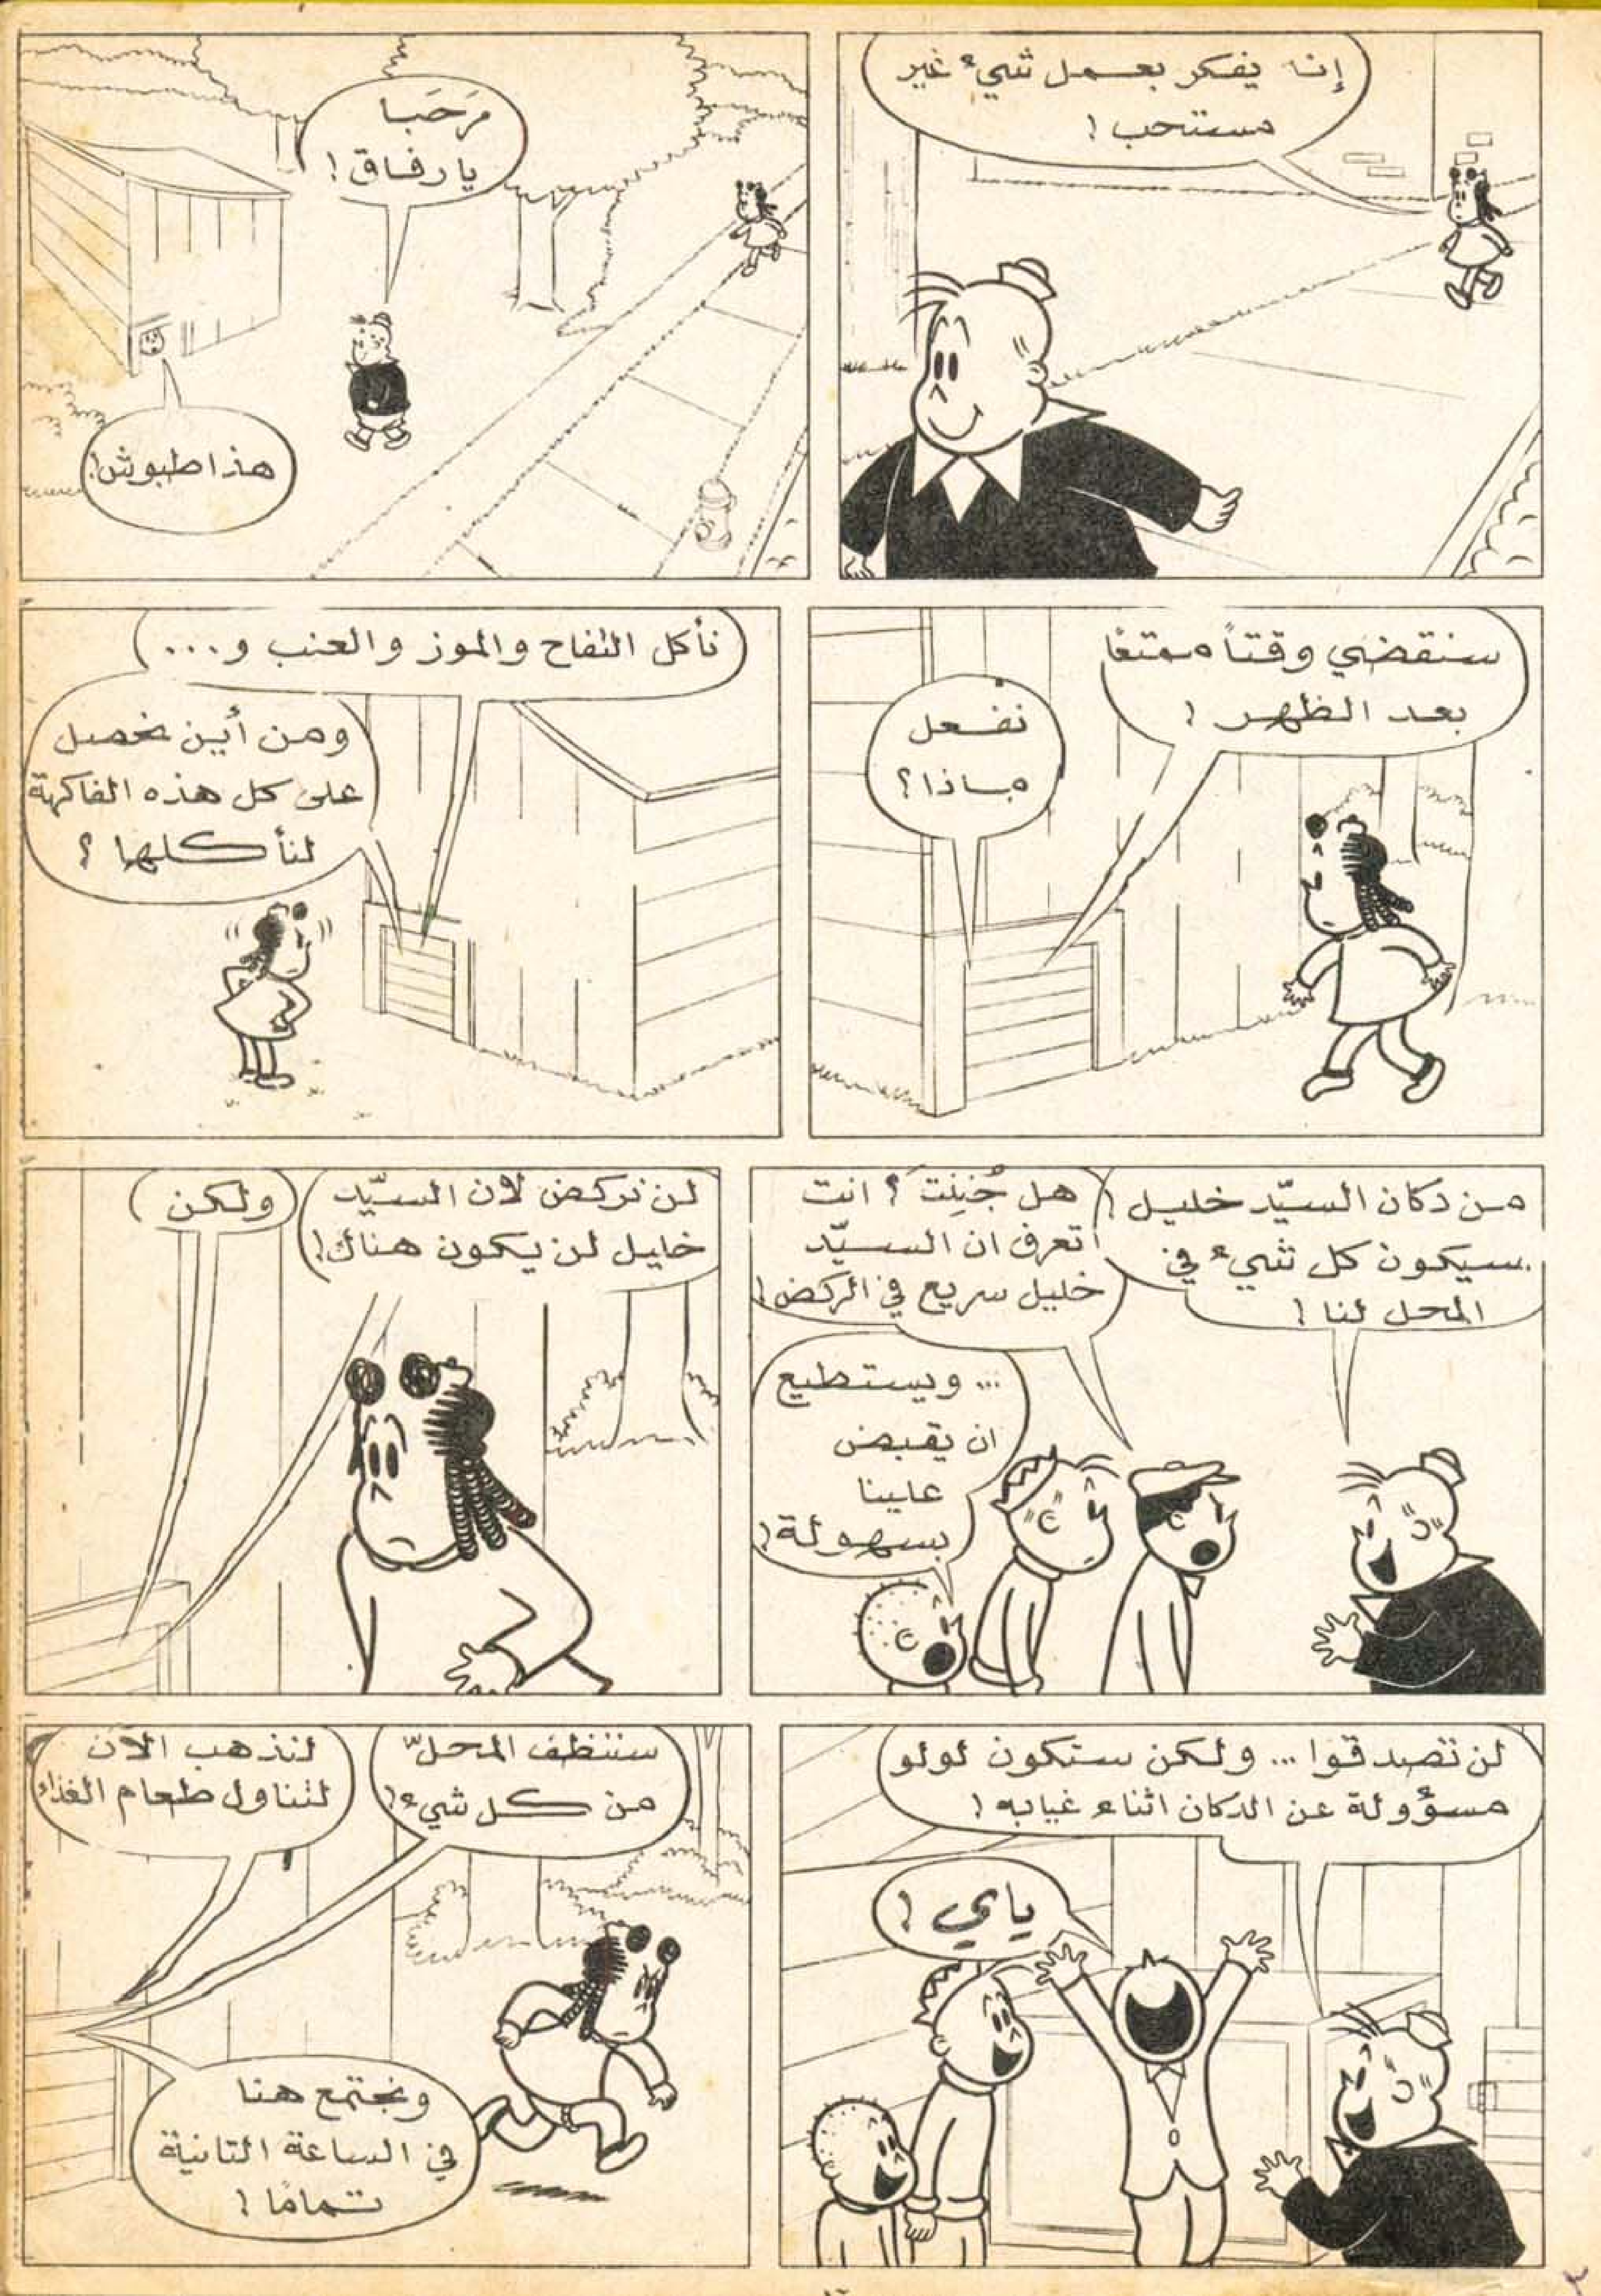 إنه يفكر بعمل شيء غير
مستحب!
مَرحَبا
يا رفاق!
هذا طبوش!
سنقضي وقتاً ممتعًا
بعد الظهر!
نفعل
ماذا؟
نأكل التفاح والموز والعنب و...
ومن أين نحصل
على كل هذه الفاكهة
لنأكلها؟
من دكان السيّد خليل!
سيكون كل شيء في
المحل لنا!
هل جُنِنتَ؟ انت
تعرف ان السيّد
خليل سريع في الركض!
... ويستطيع
ان يقبض
علينا
بسهولة!
لن نركض لان السيّد
خليل لن يكون هناك!
ولكن
لن تصدقوا... ولكن ستكون لولو
مسؤولة عن الدكان اثناء غيابه!
ياي!
سننظف المحلّ
من كل شيء!
لنذهب الآن
لتناول طعام الغذاء
ونجتمع هنا
في الساعة الثانية
تمامًا!